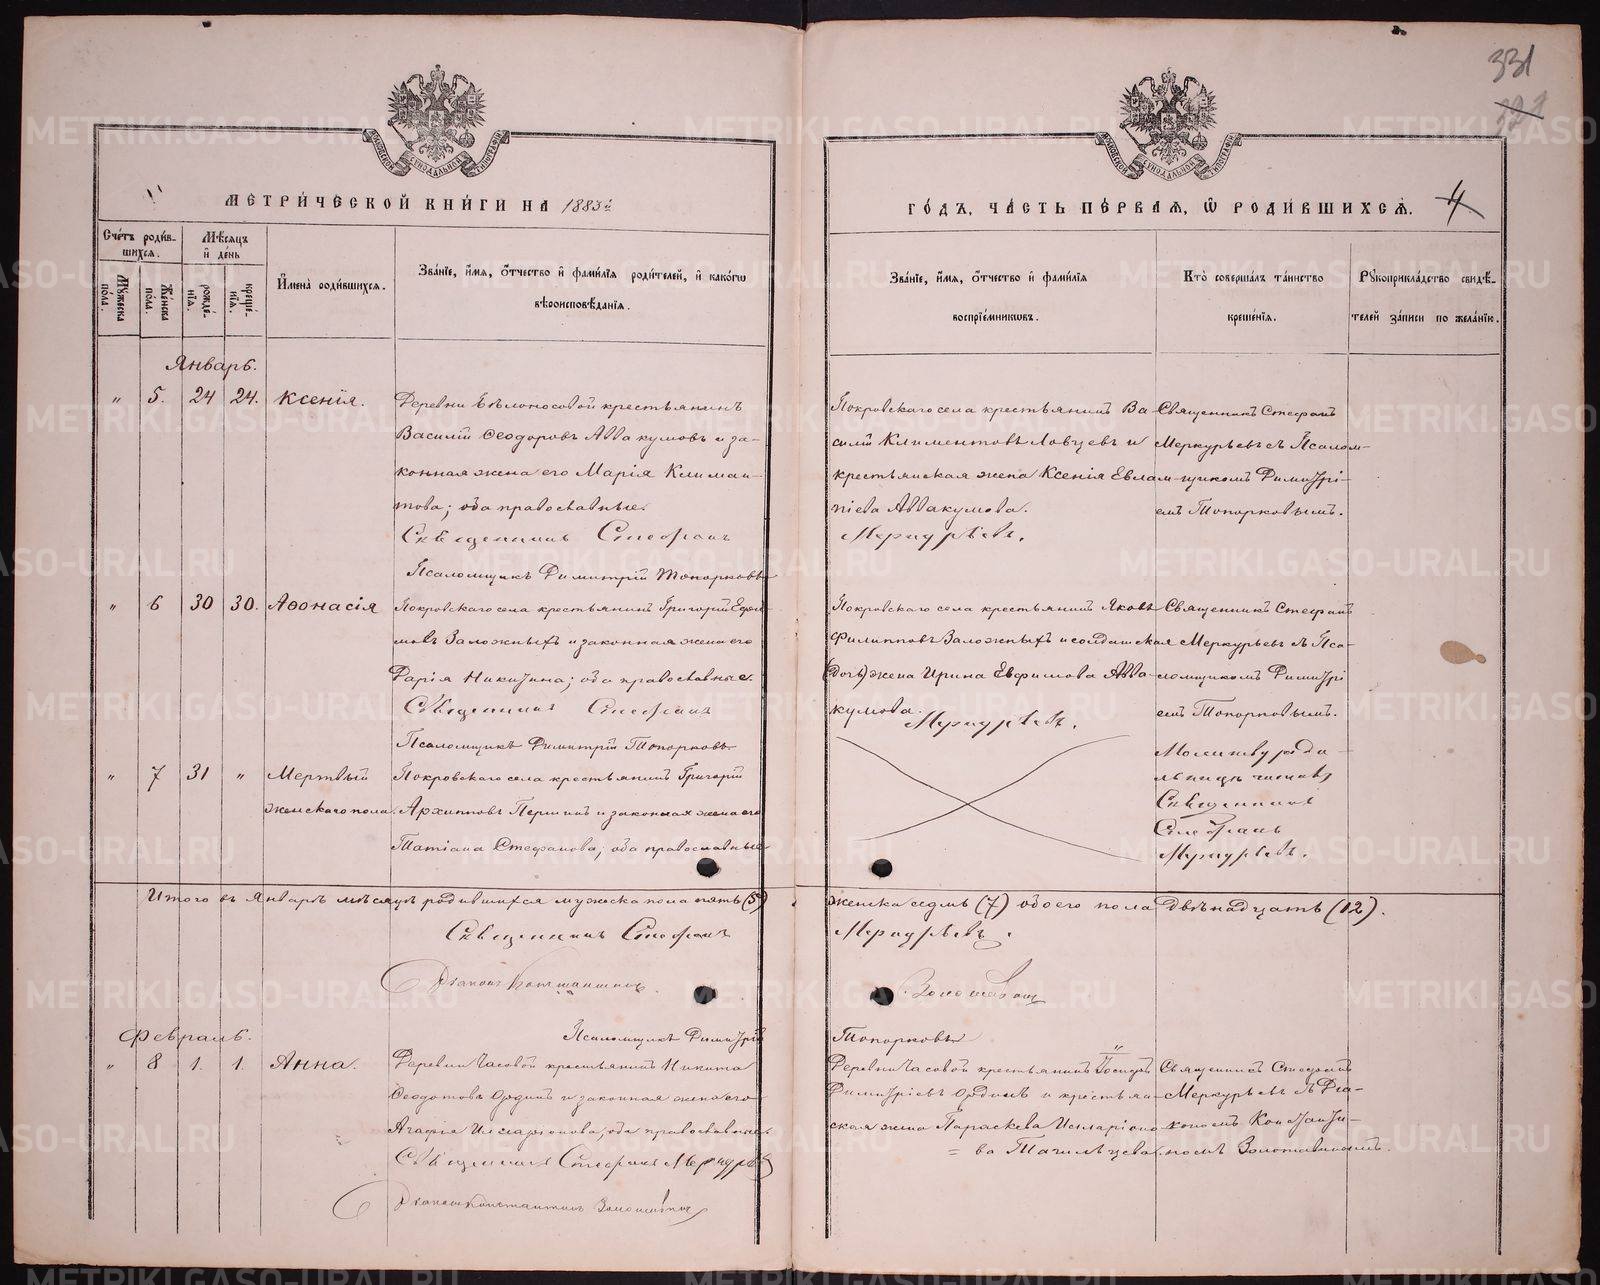 331
МОСКОВСКОЙ СѴНОДАЛЬНОЙ ТИПОГРАФІИ
МОСКОВСКОЙ СѴНОДАЛЬНОЙ ТИПОГРАФІИ
МЕТРИ́ЧЕСКОЙ КНИ́ГИ НА 1883й
ГО́ДЪ, ЧА́СТЬ ПЕ́РВАЯ, Ѡ РОДИ́ВШИХСЯ. 4
Сче́тъ роди́в-
шихся.
Мѣ́сяцъ
и҆ де́нь
Мꙋ́жеска по́ла.
Же́нска по́ла.
рожде́-нїѧ.
креще́-нїѧ.
И҆мена̀ роди́вшихся.
Зва́нїе, и҆́мя, ѻ҆́тчество и҆ фами́лїя роди́телей, и҆ како́гѡ
вѣроисповѣ́данїя.
Зва́нїе, и҆́мя, ѻ҆́тчество и҆ фами́лїя
воспрїе́мникѡвъ.
Кто̀ соверша́лъ та́инство
креще́нїя.
Рꙋкоприкла́дство свидѣ́-
телей за́писи по жела́нїю.
Январь.
" 5. 24 24. Ксенія.
Деревни Бѣлоносовой крестьянинъ
Василій Ѳеодоровъ Аввакумовъ и за-
конная жена его Марія Климан-
това; оба православные.
Священникъ Стефанъ
Псаломщикъ Димитрій Топорковъ
Покровскаго села крестьянинъ Ва-
силій Климентовъ Ловцевъ и
крестьянская жена Ксенія Евлам-
піева Аввакумова.
Меркурьевъ.
Священникъ Стефанъ
Меркурьевъ съ Псалом-
щикомъ Димитрі-
емъ Топорковымъ.
" 6 30 30. Аѳонасія
Покровскаго села крестьянинъ Григорій Ефи-
мовъ Заложныхъ и законная жена его
Дарія Никитина; оба православные.
Священникъ Стефанъ
Псаломщикъ Димитрій Топорковъ
Покровскаго села крестьянинъ Яковъ
Филипповъ Заложныхъ и солдатская
(дочь) жена Ирина Евфимова Авва-
кумова.
Меркурьевъ.
Священникъ Стефанъ
Меркурьевъ съ Пса-
ломщикомъ Димитрі
емъ Топорковымъ.
" 7 31 " Мертвый
женскаго пола.
Покровскаго села крестьянинъ Григорій
Архиповъ Першинъ и законная жена его
Татіана Стефанова; оба православные
Молитву роди-
льницѣ читалъ
Священникъ
Стефанъ
Меркурьевъ.
Итого въ Январѣ мѣсяцѣ родившихся мужеска пола пять (5)
женска седмь (7) обоего пола двѣнадцать (12).
Священникъ Стефанъ
Меркурьевъ.
Діаконъ Константинъ
Золотавинъ
Псаломщикъ Димитрій
Топорковъ
Февраль.
" 8 1. 1. Анна.
Деревни Часовой крестьянинъ Никита
Ѳеодотовъ Ордин и законная жена его
Агафія Иларіонова; оба православные
Священникъ Стефанъ Меркурьевъ
Діаконъ Константинъ Золотавинъ
Деревни Часовой крестьянинъ
Димитріевъ и крестьян-
ская жена Параскева Иларіоно-
= ва
Священникъ Стефанъ
Меркурьевъ съ Діа-
кономъ Константи-
номъ Золотавинымъ.
METRIKI.GASO-URAL.RU